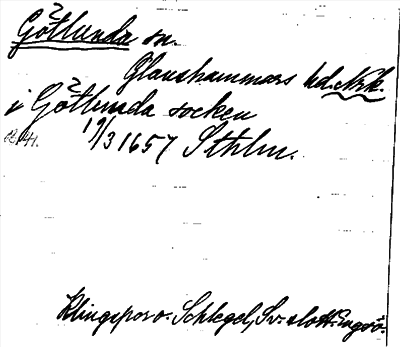 Götlunda sn.
Glanshammars hd. Nrk.
i Götlunda socken
19/3 1657 Sthlm.
Klingspor o. Schlegel, Sv. slott. Engsö.